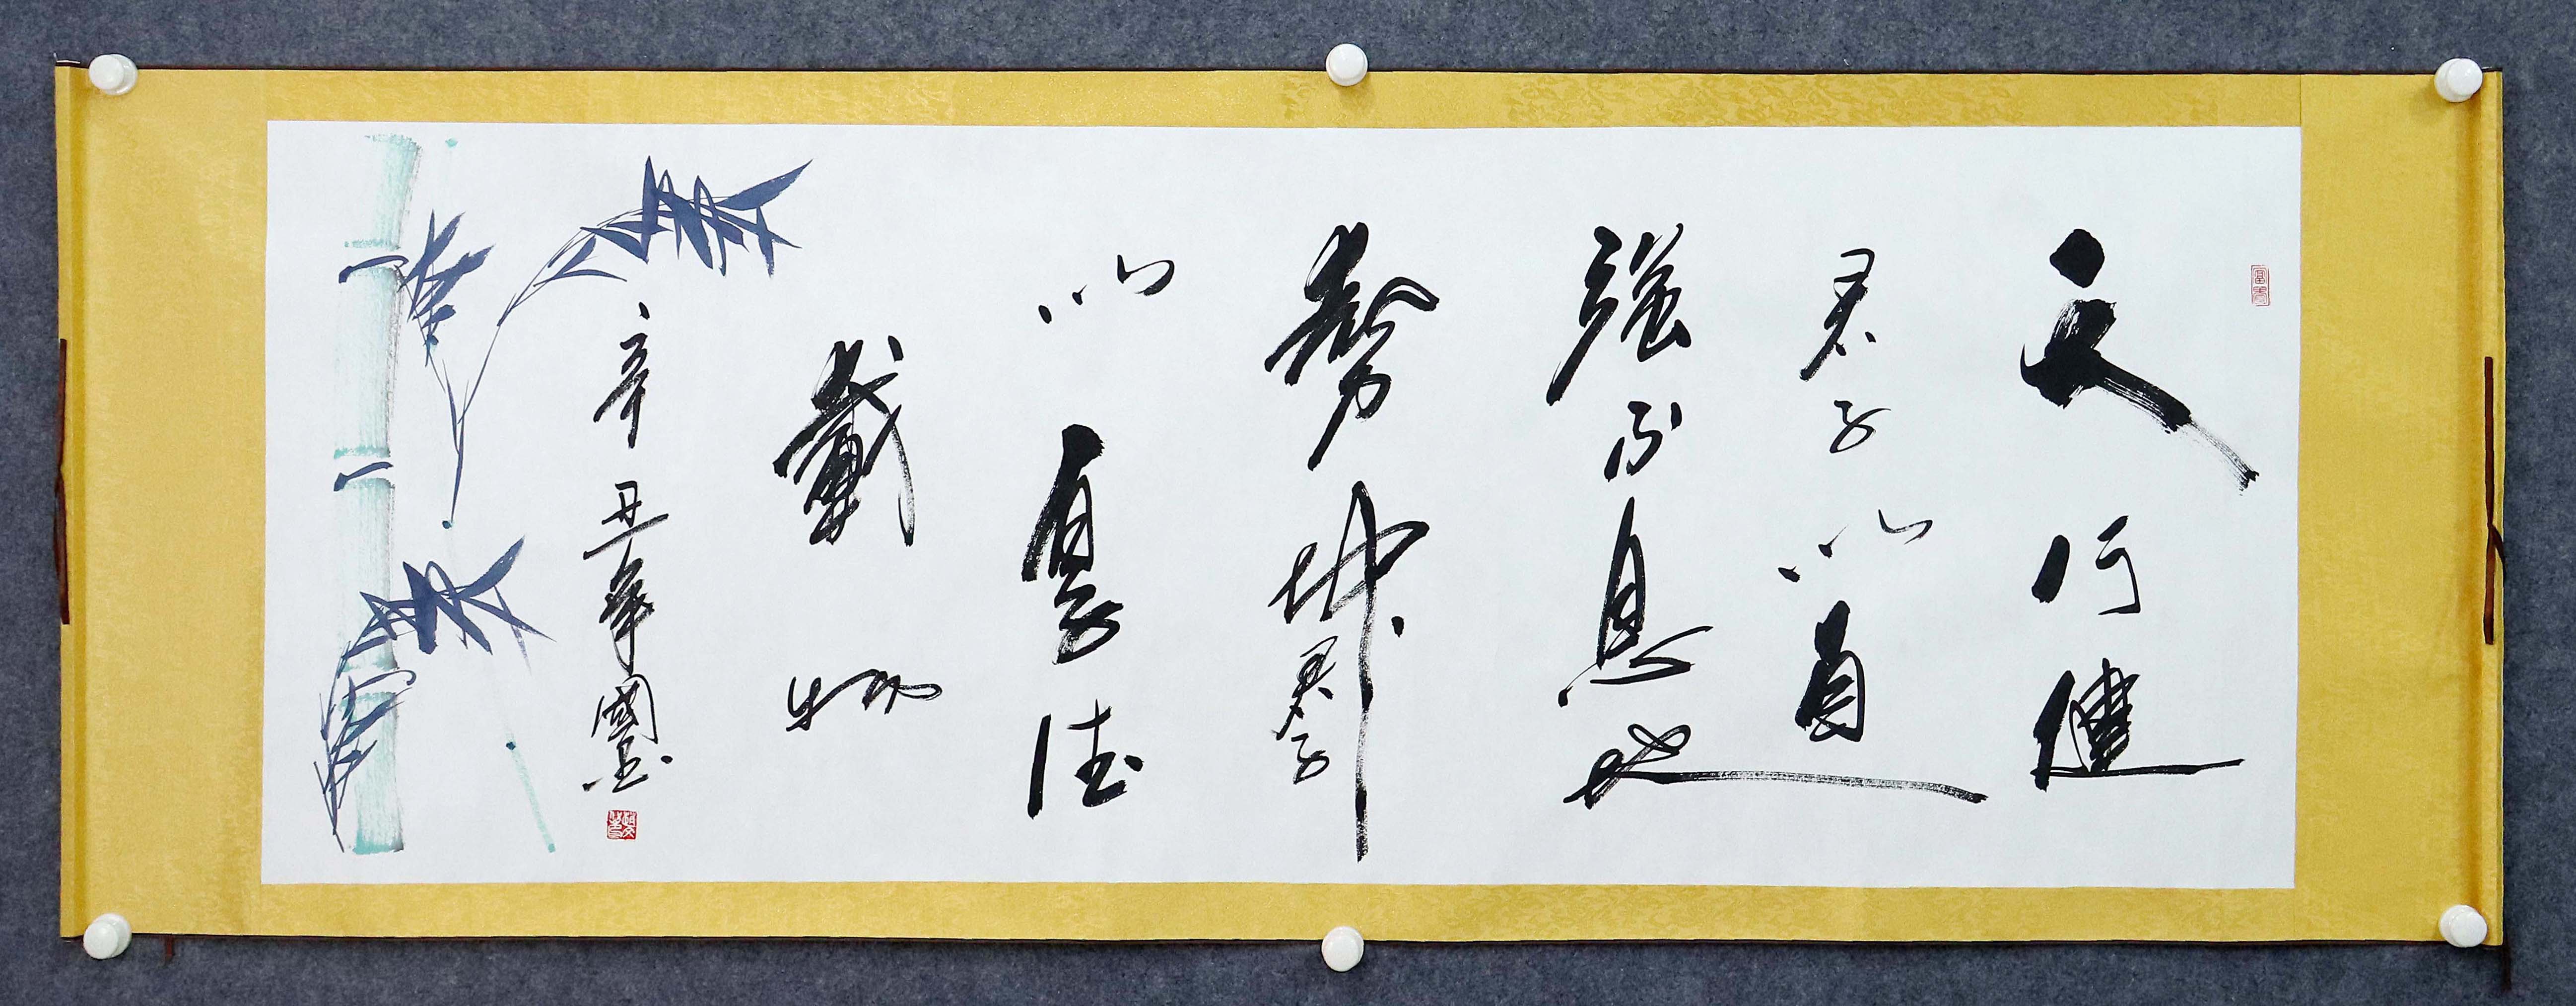 天行健
君子以自
強不息地
勢坤君子
以厚德
載物
辛丑年國画